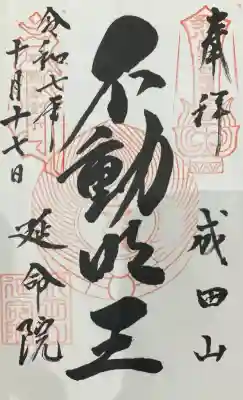 奉拝
成田山
不動明王
令和七年
十月十七日
延命院